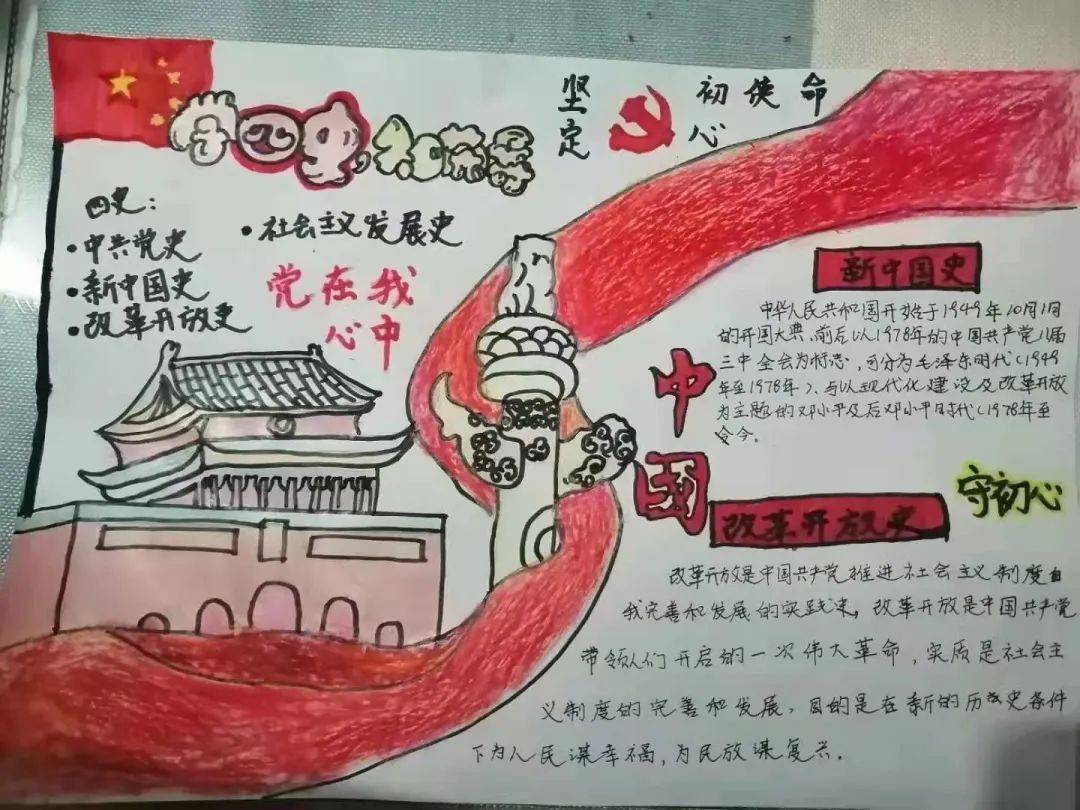 学四史
坚定
初心
使命
四史：
·中共党史
·新中国史
·改革开放史
·社会主义发展史
党在我
心中
中国
新中国史
中华人民共和国开始于1949年10月1日
的开国大典，前后以1978年的中国共产党11届
三中全会为标志，可分为毛泽东时代（1949
年至1978年）、与以现代化建设及改革开放
为主题的邓小平及后邓小平时代（1978年至
令今。
守初心
改革开放史
改革开放是中国共产党推进社会主义制度自
我完善和发展的实践来，改革开放是中国共产党
带领人们开启的一次伟大革命，实质是社会主
义制度的完善和发展，目的是在新的历史条件
下为人民谋幸福，为民放谋复兴．